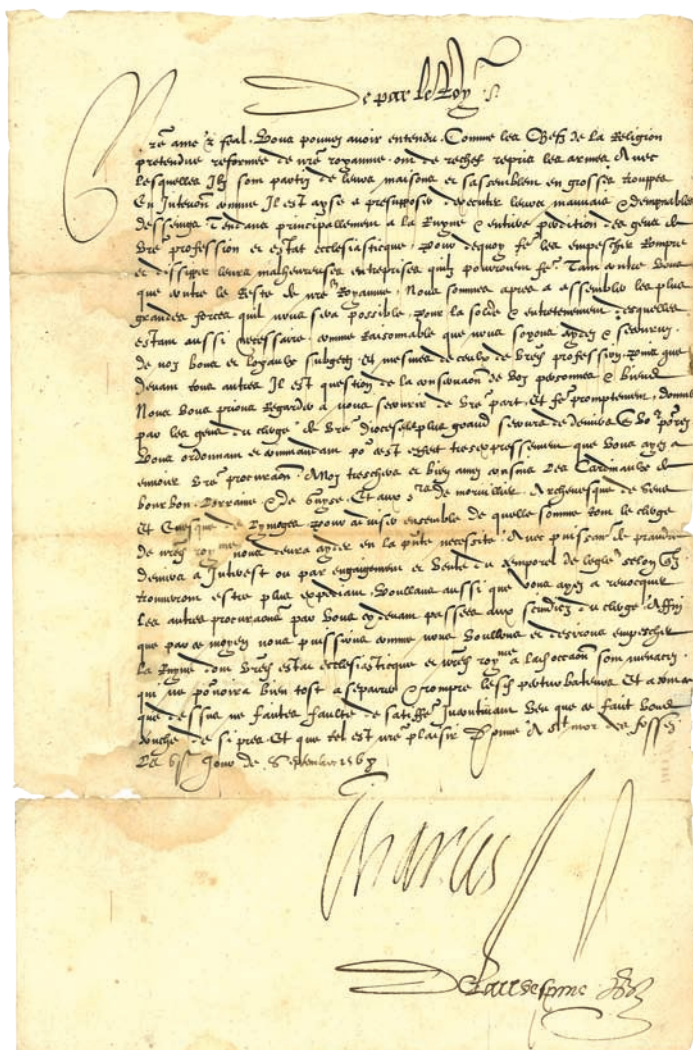 De par le Roy
Nre ame & feal. Vous pouvez avoir entendu. Comme les Chefz de la Religion
pretendue reformee de nre royaume. ont de rechef repris les armes. Avec
lesquelles Ilz sont partiz de leurs maisons et sassemblent en grosses trouppes
En Intention comme Il est ayse a presupposer dexecuter leurs mauvais & dampnables
desseings. Tendans principallement a la Ruyne & entiere perdition des gens de
vre profession et estat ecclesiasticque, pour dequoy les empescher Rompre
et dissiper leurs malheureuses entreprises quilz pourroient fe. Tant contre vous
que contre le Reste de nre Royaume, Nous sommes apres a assembler les plus
grandes forces quil nous sera possible. pour la solde & entretenement desquelles
estant aussi necessaire. comme Raisonnable que nous soyons aydez & secouruz
de noz bons et loyaulx subgectz. Et mesmes de ceulx de vre profession. puis que
devant tous autres Il est question de la conservaon de voz personnes & biens
Nous vous prions Regarder a nous secourir de vre part. Et fe promptement, donner
par les gens du clerge de vre diocese le plus grand secours de deniers
Vous ordonnant et commandant po cest effect tresexpressement que vous ayez a
envoier vre procuraon. A noz treschers et bien amez cousins Les Cardinaulx de
bourbon. Lorraine & de Guyse. Et aux srs de morvillier. Archevesque de Sens
Et Evesque de Lymoges pour adviser ensemble de quelle somme tout le clerge
de nre royme nous devra ayder en la pnte necessite Avec puissance de prandre
deniers a Interest ou par engaigement et vente du temporel de leglise selon quilz
trouveront estre plus expediant. Voullans aussi que vous ayez a revocquer
Les autres procuraons par vous cy devant passees aux scindicz du clerge Affin
que par ce moyen nous puissions comme nous voullons et desirons empescher
La Ruyne dont vre estat ecclesiasticque et nre royme a lad occaon sont menacez.
qui ne pourra bien tost a separer & rompre lesd perturbateurs Et a
que dessus ne faictes faulte de satisfe Incontinant Veu que ce fait vous
touche de si pres. Et que tel est nre plaisir Donne A st mor des fossez
Le jour de Septembre 1568
Charles
Delaubespine